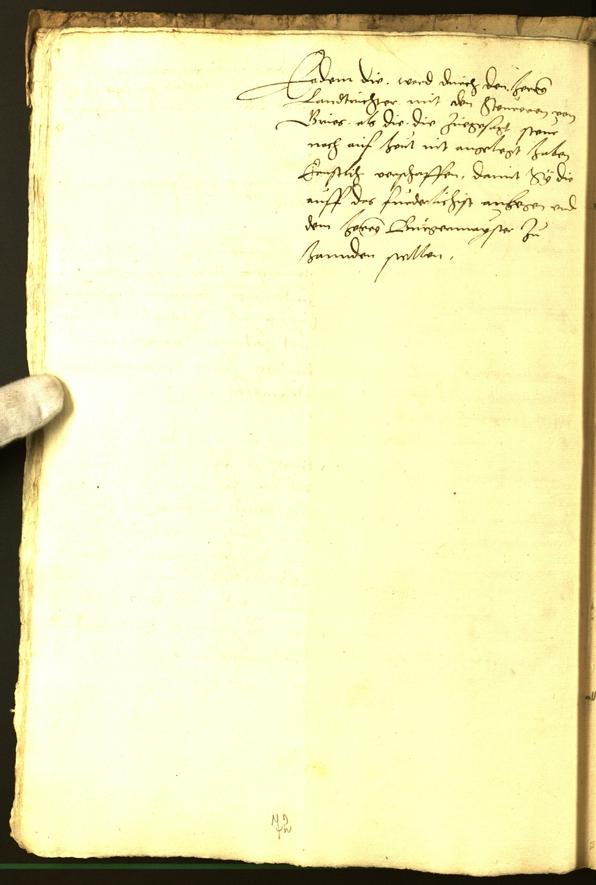 Eadem die. ward durch den herrn
Landtrichter mit den Steurern von
Gries. als die die Zuegesagt steur
noch auf heut nit angelegt haben
Ernstlich verschaffen, damit Sy die
auff das fürderlichist anlegen und
dem herrn Burgermayster Zu
hannden stellen.